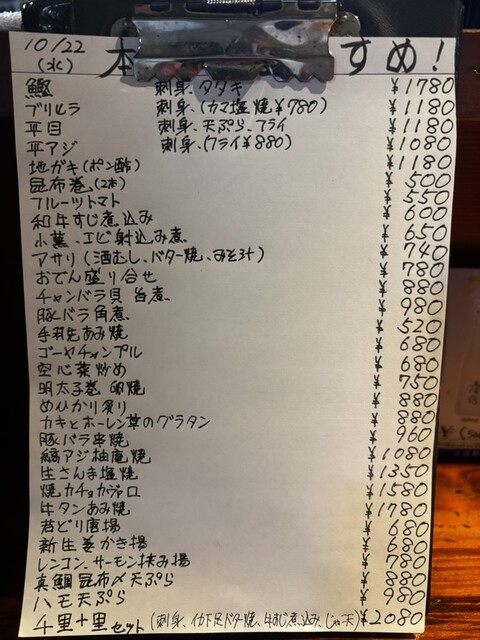 10/22
(水) 本 すめ!
鰹 刺身、タタキ ¥1780
ブリヒラ 刺身、(カマ塩焼¥780) ¥1180
平目 刺身、天ぷら、フライ ¥1180
平アジ 刺身、(フライ¥880) ¥1080
地ガキ(ポン酢) ¥1180
昆布巻(2本) ¥500
フルーツトマト ¥550
和牛すじ煮込み ¥600
小蕪、エビ射込み煮 ¥650
アサリ(酒むし、バター焼、みそ汁) ¥740
おでん盛り合せ ¥780
チャンバラ貝 旨煮 ¥880
豚バラ角煮 ¥980
手羽先あみ焼 ¥520
ゴーヤチャンプル ¥680
空心菜炒め ¥680
明太子巻 卵焼 ¥750
めひかり炙り ¥880
カキとホーレン草のグラタン ¥880
豚バラ串焼 ¥960
縞アジ柚庵焼 ¥1080
生さんま塩焼 ¥1350
焼カチョカヴァロ ¥1580
牛タンあみ焼 ¥1780
若どり唐揚 ¥680
新生姜かき揚 ¥680
レンコン、サーモン挟み揚 ¥780
真鯛昆布〆天ぷら ¥880
ハモ天ぷら ¥980
千里十里セット(刺身、イカ下足バター焼、牛すじ煮込み、じゃこ天) ¥2080